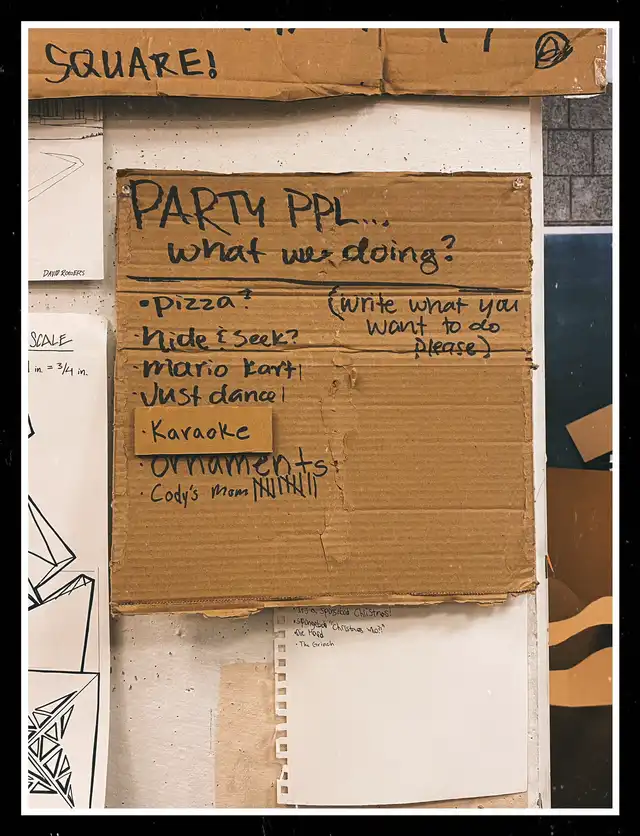 SQUARE!
DAVID ROGERS
SCALE
1 in. = 3/4 in.
PARTY PPL...
what we doing?
(write what you
want to do
please)
• pizza?
• hide & seek?
• mario kart|
• Just dance|
• Karaoke
• ornaments
• Cody's mom
• Spongebob "Christmas Who?"
Die Hard
• The Grinch